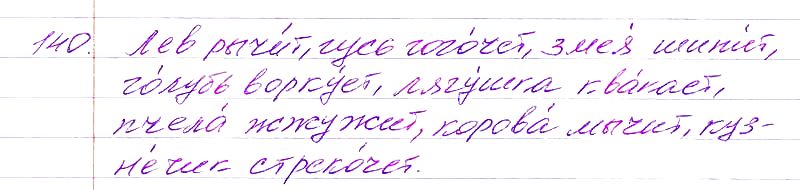 140. Лев рычи́т, гусь гого́чет, змея́ шипи́т,
го́лубь ворку́ет, лягу́шка ква́кает,
пчела́ жжужжит, коро́ва мычит, куз-
не́чик стреко́чет.